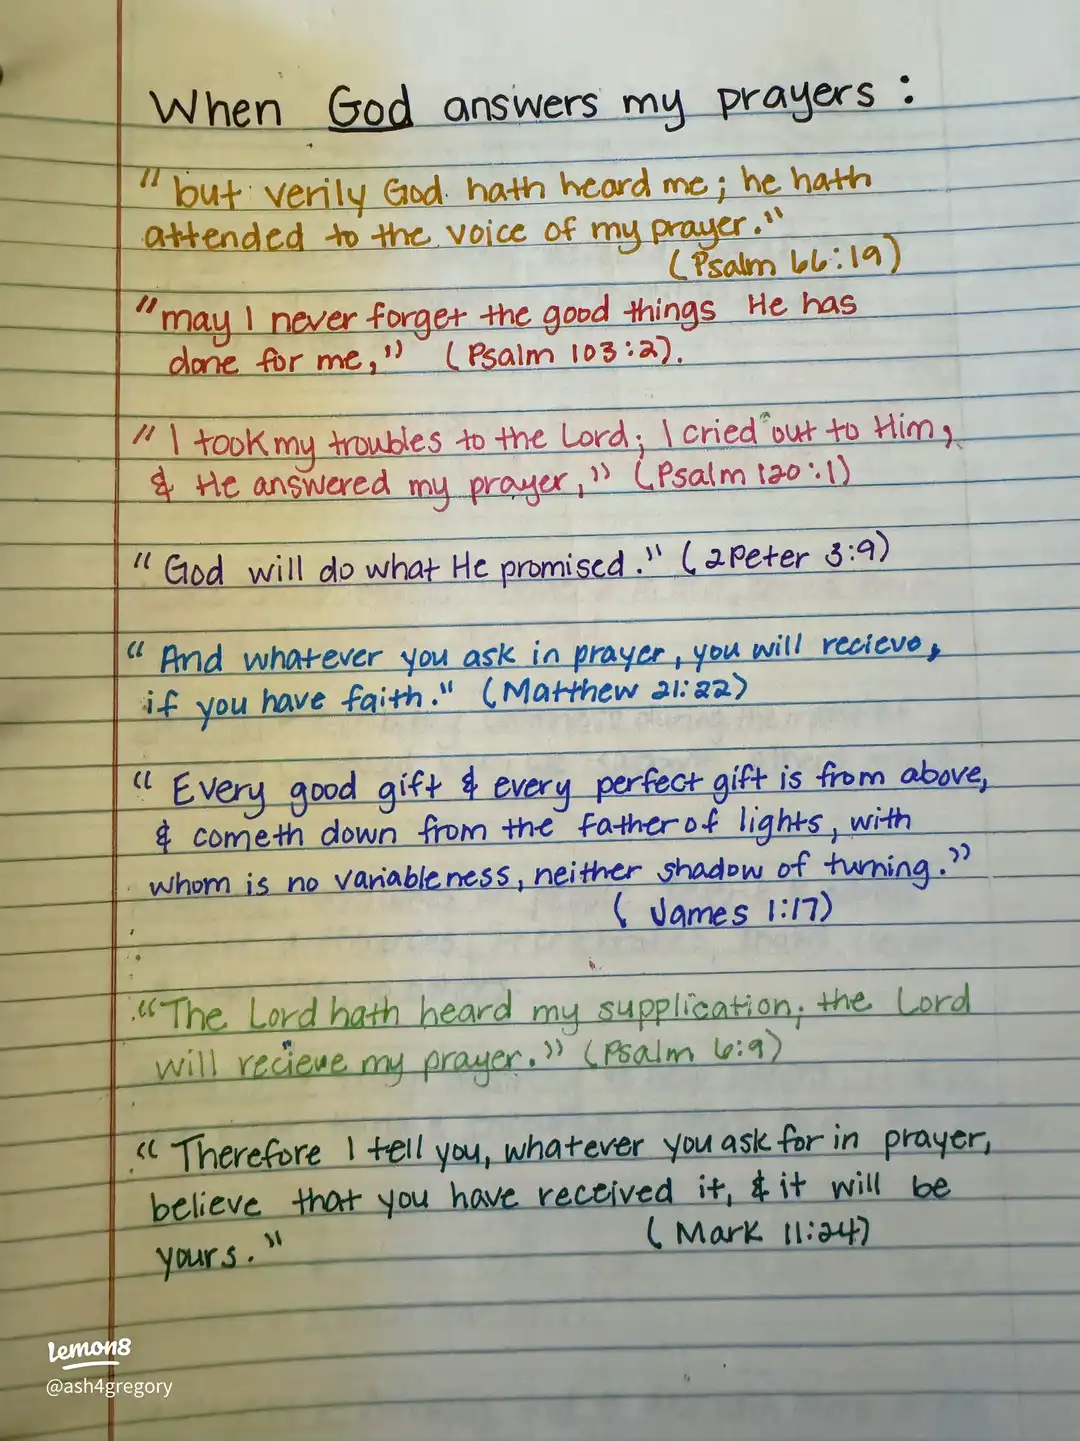 When God answers my prayers :
"but verily God hath heard me; he hath
attended to the voice of my prayer."
(Psalm 66:19)
"may I never forget the good things He has
done for me," (Psalm 103:2).
"I took my troubles to the Lord; I cried out to Him,
& He answered my prayer," (Psalm 120:1)
"God will do what He promised." (2 Peter 3:9)
"And whatever you ask in prayer, you will recieve,
if you have faith." (Matthew 21:22)
"Every good gift & every perfect gift is from above,
& cometh down from the father of lights, with
whom is no variableness, neither shadow of turning."
(James 1:17)
"The Lord hath heard my supplication; the Lord
will recieve my prayer." (Psalm 6:9)
"Therefore I tell you, whatever you ask for in prayer,
believe that you have received it, & it will be
yours." (Mark 11:24)
Lemon8
@ash4gregory